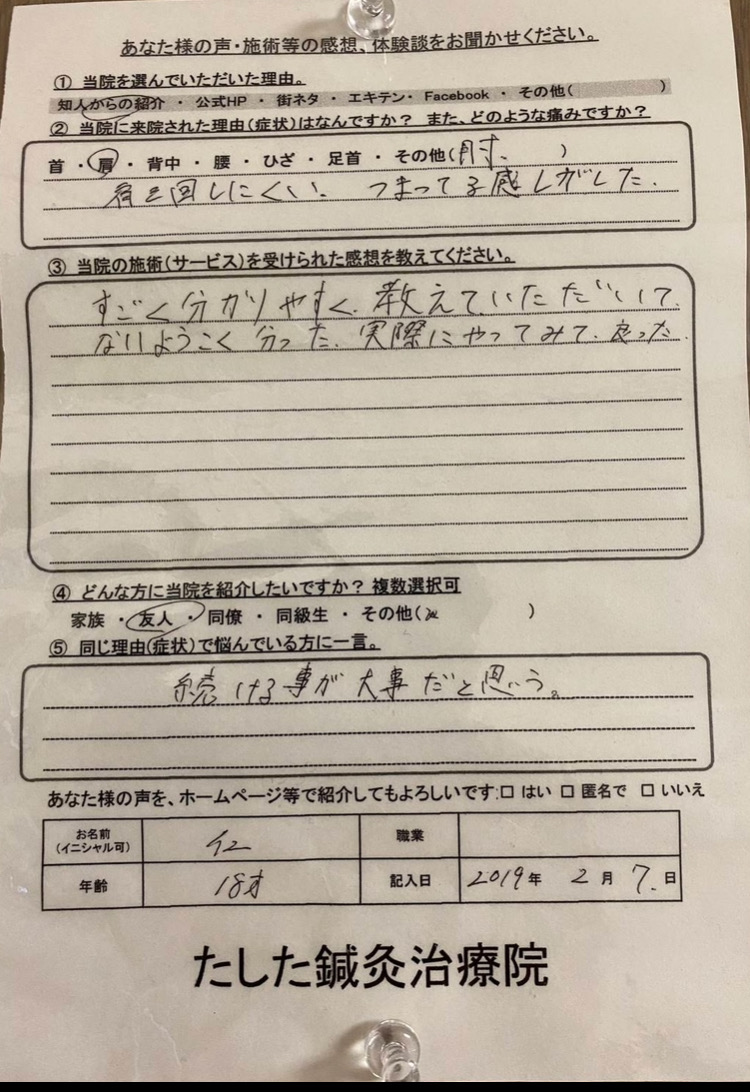 あなた様の声・施術等の感想、体験談をお聞かせください。
① 当院を選んでいただいた理由。
知人からの紹介 ・ 公式HP ・ 街ネタ ・ エキテン・ Facebook ・ その他( )
② 当院に来院された理由(症状)はなんですか? また、どのような痛みですか?
首 ・ 肩 ・ 背中 ・ 腰 ・ ひざ ・ 足首 ・ その他(肘、 )
肩を回しにくい。 つまってる感じがした。
③ 当院の施術(サービス)を受けられた感想を教えてください。
すごく分かりやすく、教えて、いただいて、
ないようこく 分った、実際にやってみて、良った。
④ どんな方に当院を紹介したいですか? 複数選択可
家族 ・ 友人 ・ 同僚 ・ 同級生 ・ その他( )
⑤ 同じ理由(症状)で悩んでいる方に一言。
続ける事が大事だと思う。
あなた様の声を、ホームページ等で紹介してもよろしいです:□ はい □ 匿名で □ いいえ
お名前
(イニシャル可)
職業
年齢 18才 記入日 2019年 2月 7.日
たした鍼灸治療院